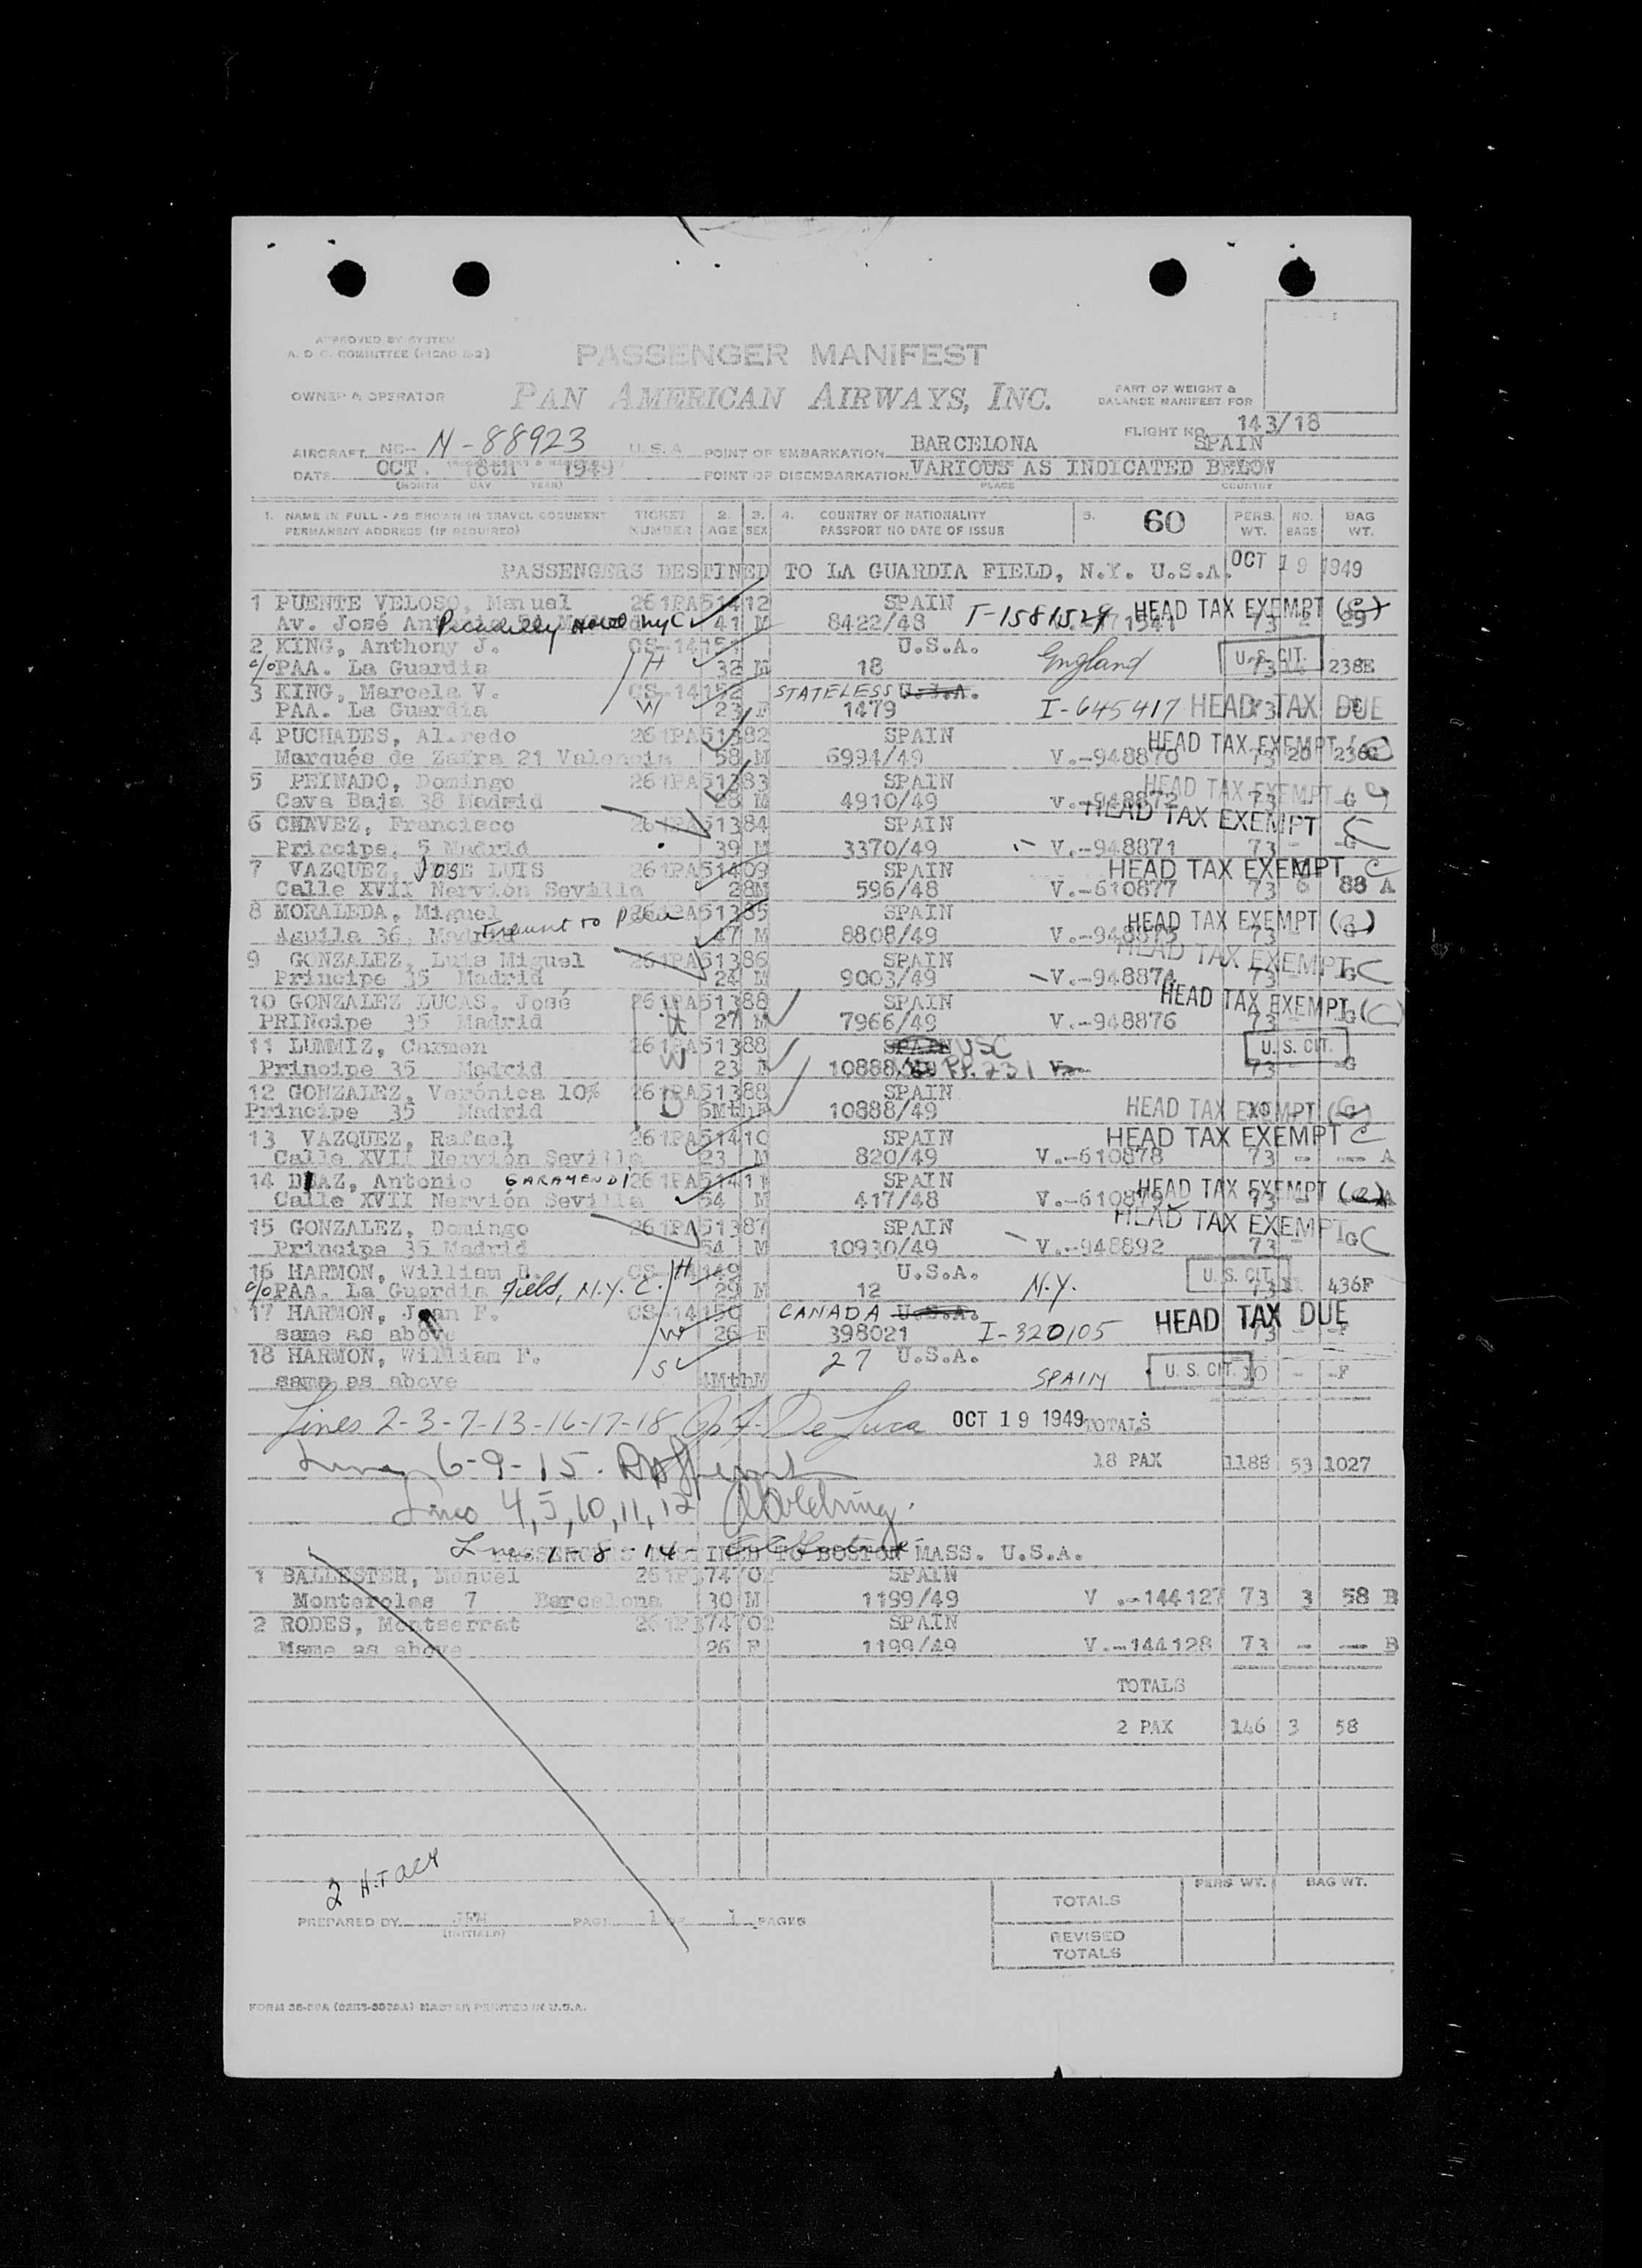 APPROVED BY SYSTEM
A. D. C. COMMITTEE (PICAO
PASSENGER MANIFEST
OWNER & OPERATOR PAN AMERICAN AIRWAYS, INC. PART OF WEIGHT & BALANCE MANIFEST FOR
FLIGHT NO. 143/18
AIRCRAFT NC- N-88923 U.S.A. POINT OF EMBARKATION BARCELONA SPAIN
DATE OCT. 18th 1949 POINT OF DISEMBARKATION VARIOUS AS INDICATED BELOW
(MONTH DAY YEAR) PLACE COUNTRY
1. NAME IN FULL - AS SHOWN IN TRAVEL DOCUMENT TICKET 2. 3. 4. COUNTRY OF NATIONALITY 5. 60 PERS. NO. BAG
PERMANENT ADDRESS (IF REQUIRED) NUMBER AGE SEX PASSPORT NO DATE OF ISSUE WT. BAGS WT.
PASSENGERS DESTINED TO LA GUARDIA FIELD, N.Y. U.S.A. OCT 19 1949
1 PUENTE VELOSO, Manuel 261PA51412 SPAIN HEAD TAX EXEMPT (C)
Av. José Piccadilly Hotel NYC 41 M 8422/48 T-1581529 73 -
2 KING, Anthony J. CS-14151 U.S.A. England U.S. CIT.
c/o PAA. La Guardia H 32 M 18 73 14 238E
3 KING, Marcela V. CS-14152 STATELESS U.S.A.
PAA. La Guardia W 23 F 1479 I-645417 HEAD TAX DUE 73
4 PUCHADES, Alfredo 261PA51382 SPAIN HEAD TAX EXEMPT
Marqués de Zafra 21 Valencia 58 M 6994/49 V.-948870 73 20 236G
5 PEINADO, Domingo 261PA51383 SPAIN HEAD TAX EXEMPT
Cava Baja 38 Madrid 28 M 4910/49 V.-948872 73 - -G
6 CHAVEZ, Francisco 261PA51384 SPAIN HEAD TAX EXEMPT C
Principe, 5 Madrid 39 M 3370/49 V.-948871 73 - -G
7 VAZQUEZ, JOSE LUIS 261PA51409 SPAIN HEAD TAX EXEMPT C
Calle XVII Nervión Sevilla 28M 596/48 V.-610877 73 6 88 A
8 MORALEDA, Miguel 261PA51385 SPAIN HEAD TAX EXEMPT (C)
Aguila 36, Madrid 47 M 8808/49 73 -
9 GONZALEZ, Luis Miguel 261PA51386 SPAIN HEAD TAX EXEMPT C
Principe 35 Madrid 24 M 9003/49 V.-948874 73
10 GONZALEZ LUCAS, José 261PA51388 SPAIN HEAD TAX EXEMPT (C)
PRINcipe 35 Madrid H 27 M 7966/49 V.-948876 73 -G
11 LUMMIZ, Carmen 261PA51388 SPAIN USC U. S. CIT.
Principe 35 Madrid W 23 F 10888/49 PP. 231 73 -G
12 GONZALEZ, Verónica 10% 261PA51388 SPAIN
Principe 35 Madrid D 6MthF 10888/49 HEAD TAX EXEMPT 10
13 VAZQUEZ, Rafael 261PA51410 SPAIN HEAD TAX EXEMPT C
Calle XVII Nervión Sevilla 23 M 820/49 V.-610878 73 - -- A
14 DIAZ, Antonio GARAMENDI 261PA51411 SPAIN HEAD TAX EXEMPT (C)
Calle XVII Nervión Sevilla 54 M 417/48 V.-610879 73 A
15 GONZALEZ, Domingo 261PA51387 SPAIN HEAD TAX EXEMPT C
Principe 35 Madrid 54 M 10930/49 V.-948892 73 - -G
16 HARMON, William R. CS-14149 U.S.A. U. S. CIT.
c/o PAA. La Guardia Field, N.Y.C. H 29 M 12 N.Y. 73 436F
17 HARMON, Jean F. CS-14150 CANADA U.S.A. HEAD TAX DUE
same as above W 26 F 398021 I-320105 73 - -F
18 HARMON, William F. 27 U.S.A.
same as above S 4MthM SPAIN U. S. CIT. 10 - -F
Lines 2-3-7-13-16-17-18 De Luca OCT 19 1949 TOTALS
6-9-15. 18 PAX 1188 53 1027
Lines 4,5,10,11,12
1-8-14-
PASSENGERS DESTINED TO BOSTON MASS. U.S.A.
1 BALLESTER, Manuel 261P374702 SPAIN
Monterolas 7 Barcelona 30 M 1199/49 V.-144127 73 3 58 B
2 RODES, Montserrat 261P374702 SPAIN
Msme as above 26 F 1199/49 V.-144128 73 - -- B
TOTALS
2 PAX 146 3 58
2 H.T
PERS WT. BAG WT.
TOTALS
PREPARED BY JFM PAGE 1 OF 1 PAGES
(INITIALS)
REVISED
TOTALS
MASTER PRINTED IN U.S.A.